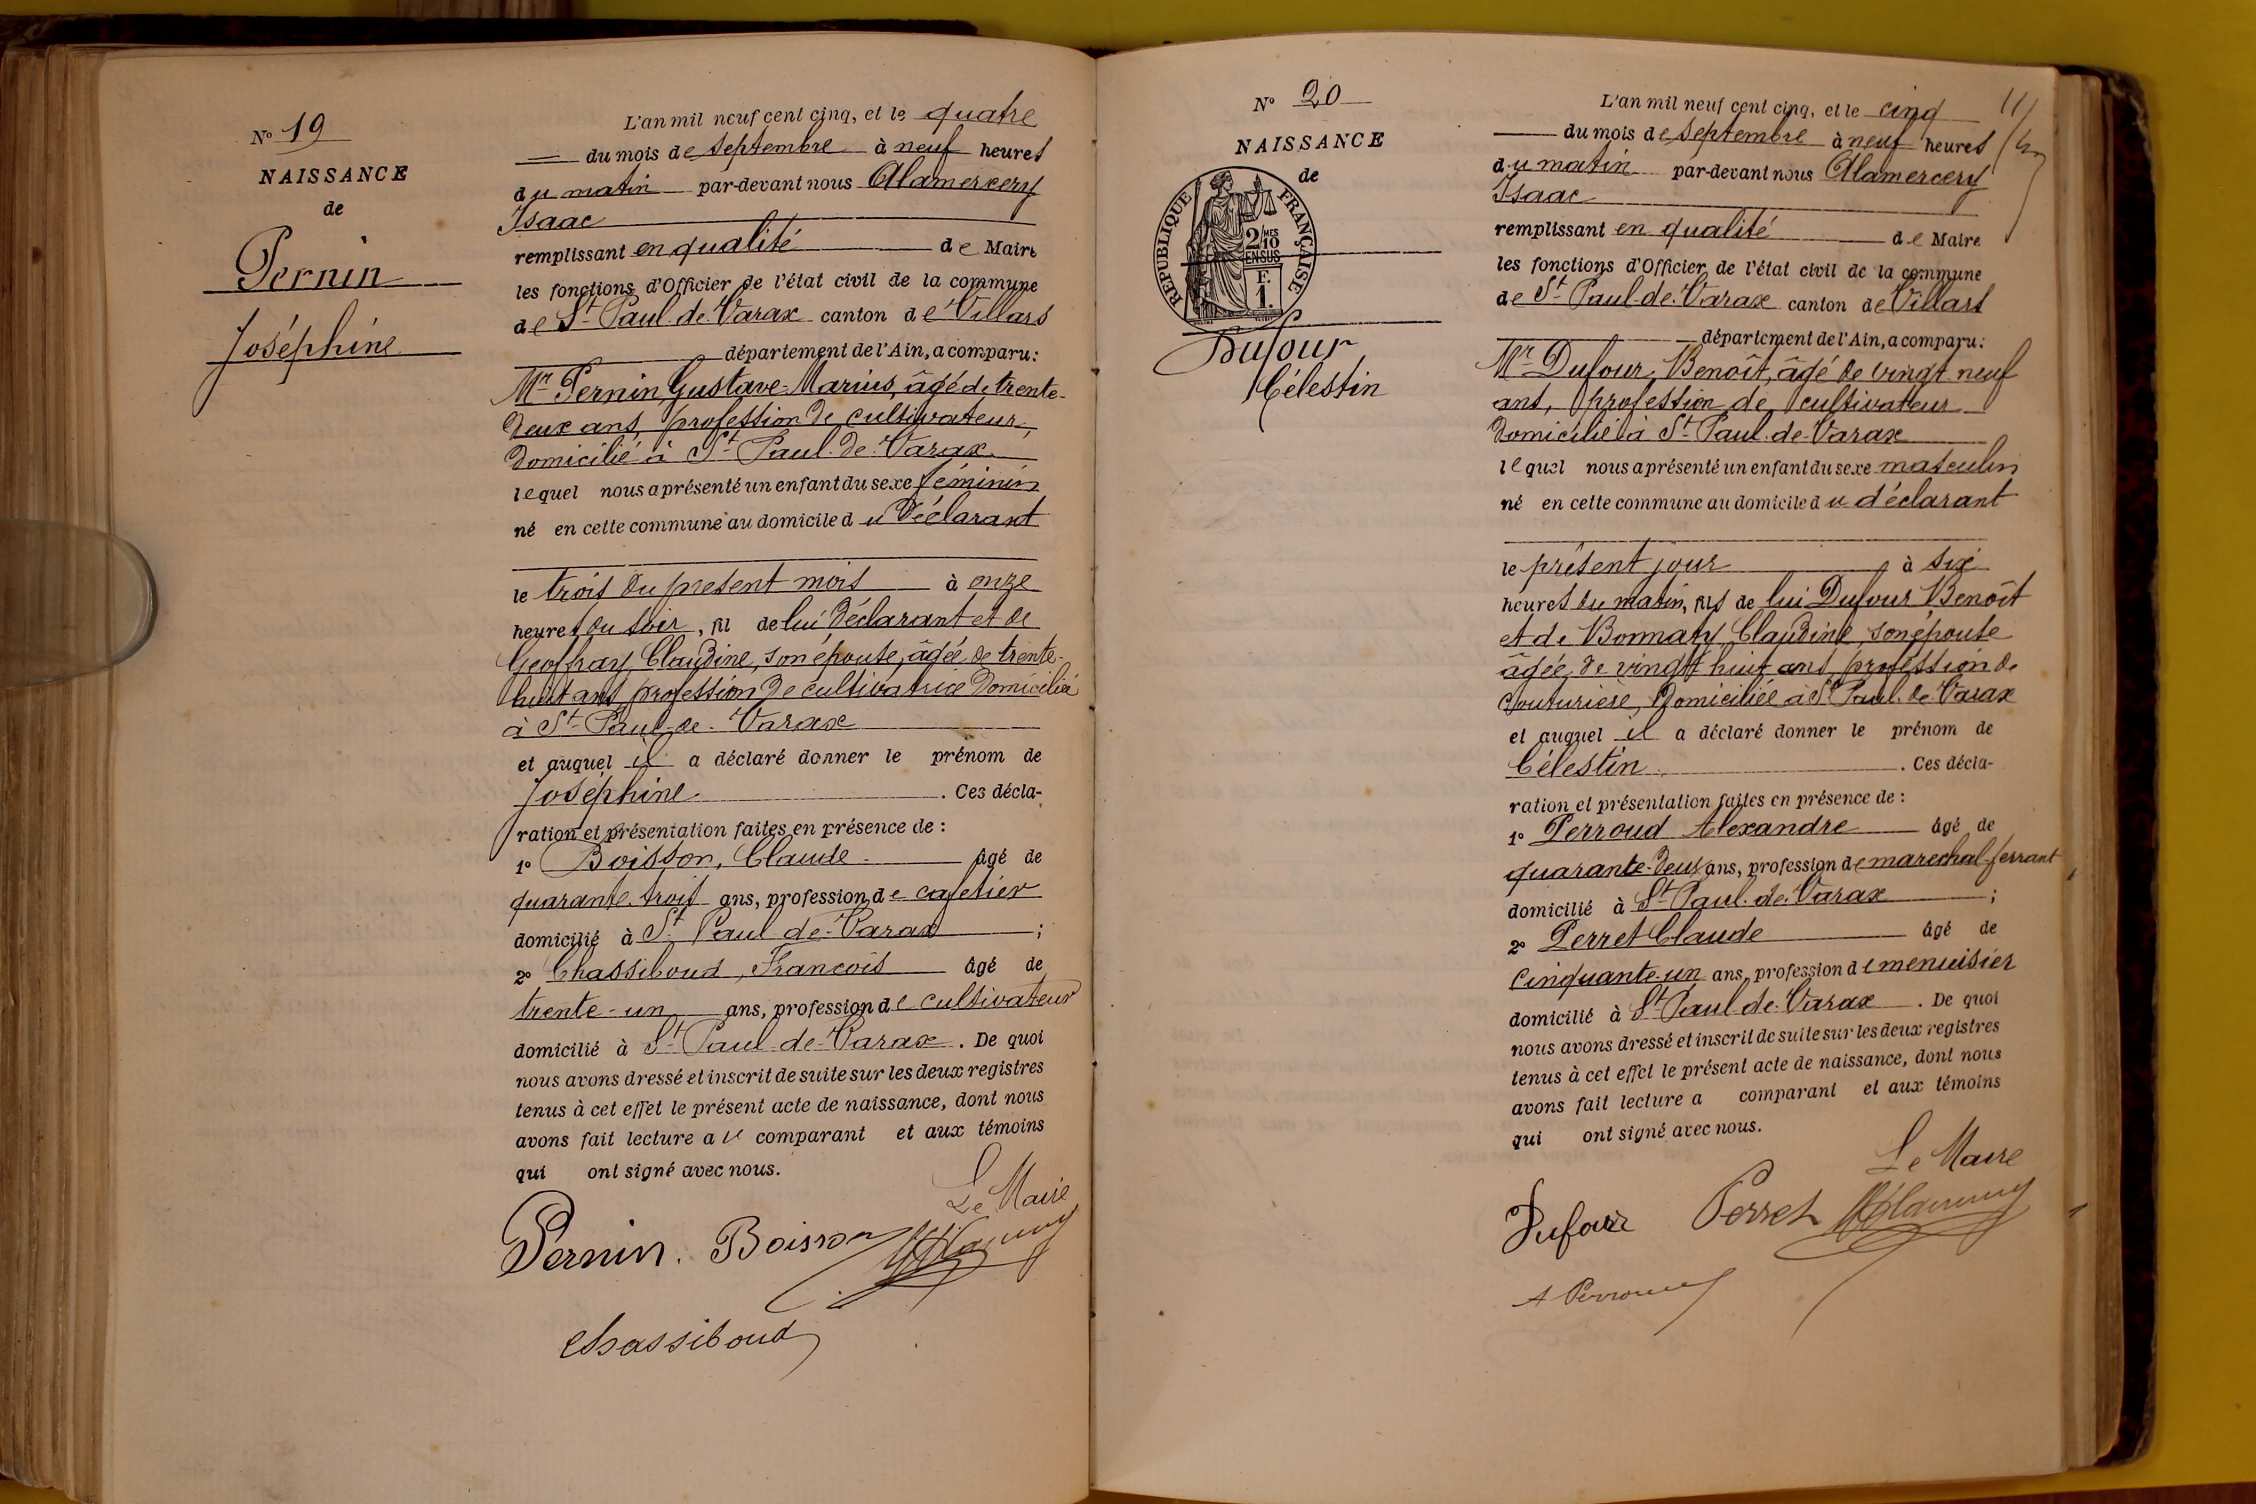 N° 19
NAISSANCE
de
Pernin
Joséphine
L'an mil neuf cent cinq, et le quatre
du mois de Septembre à neuf heures
du matin par-devant nous Alamercery
Isaac
remplissant en qualité de Maire
les fonctions d'Officier de l'état civil de la commune
de St Paul-de-Varax canton de Villars
département de l'Ain, a comparu:
Mr Pernin Gustave-Marius, âgé de trente-
deux ans, profession de cultivateur,
domicilié à St Paul-de-Varax
lequel nous a présenté un enfant du sexe féminin
né en cette commune au domicile du déclarant
le trois du present mois à onze
heures du soir, fil de lui déclarant et de
Geoffray Claudine, son épouse, âgée de trente-
huit ans, profession de cultivatrice domiciliée
à St Paul-de-Varax
et auquel il a déclaré donner le prénom de
Joséphine. Ces décla-
ration et présentation faites en présence de :
1° Boisson, Claude âgé de
quarante-trois ans, profession de cafetier
domicilié à St Paul-de-Varax ;
2° Chassiboud, François âgé de
trente-un ans, profession de cultivateur
domicilié à St Paul-de-Varax. De quoi
nous avons dressé et inscrit de suite sur les deux registres
tenus à cet effet le présent acte de naissance, dont nous
avons fait lecture au comparant et aux témoins
qui ont signé avec nous.
Le Maire
Pernin. Boisson
Chassiboud
N° 20
NAISSANCE
de
RÉPUBLIQUE FRANÇAISE
2/MES
10
EN SUS
F.
1.
Dufour
Célestin
L'an mil neuf cent cinq, et le cinq
du mois de Septembre à neuf heures
du matin par-devant nous Alamercery
Isaac
remplissant en qualité de Maire
les fonctions d'Officier de l'état civil de la commune
de St Paul-de-Varax canton de Villars
département de l'Ain, a comparu:
Mr Dufour, Benoît, âgé de vingt-neuf
ans, profession de cultivateur
domicilié à St Paul-de-Varax
lequel nous a présenté un enfant du sexe masculin
né en cette commune au domicile du déclarant
le présent jour à six
heures du matin, fils de lui Dufour Benoît
et de Bonnaty Claudine, son épouse
âgée de vingt huit ans, profession de
couturière, domiciliée à St Paul-de-Varax
et auquel il a déclaré donner le prénom de
Célestin. Ces décla-
ration et présentation faites en présence de :
1° Perroud Alexandre âgé de
quarante-deux ans, profession de marechal-ferrant
domicilié à St Paul-de-Varax ;
2° Perret Claude âgé de
cinquante-un ans, profession de menuisier
domicilié à St Paul-de-Varax. De quoi
nous avons dressé et inscrit de suite sur les deux registres
tenus à cet effet le présent acte de naissance, dont nous
avons fait lecture a comparant et aux témoins
qui ont signé avec nous.
Le Maire
Dufour Perret
A Perroud